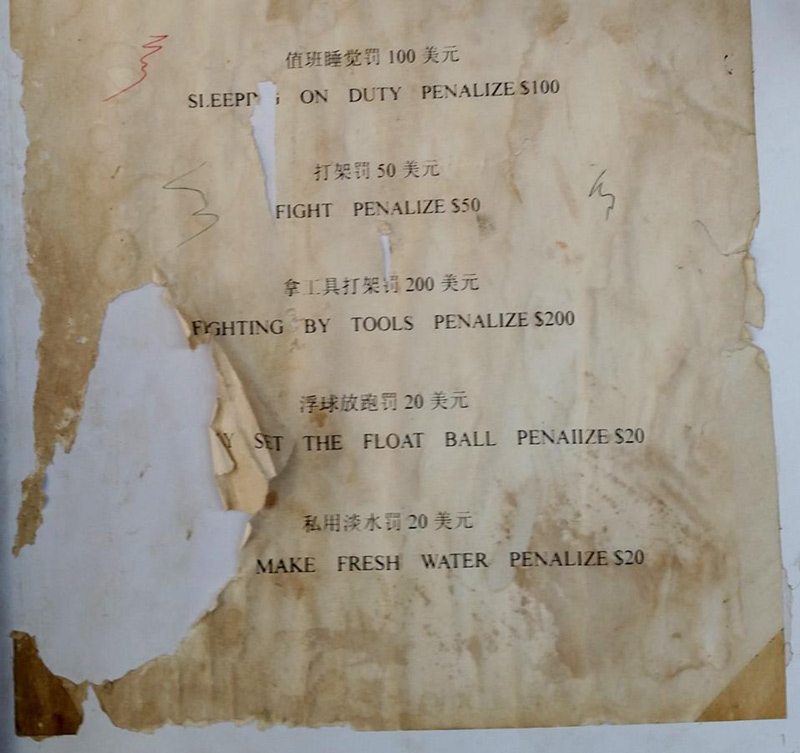 值班睡觉罚 100 美元
ON DUTY PENALIZE $100
打架罚 50 美元
FIGHT PENALIZE $50
拿工具打架罚 200 美元
FIGHTING BY TOOLS PENALIZE $200
浮球放跑罚 20 美元
SET THE FLOAT BALL PENAIIZE $20
私用淡水罚 20 美元
MAKE FRESH WATER PENALIZE $20